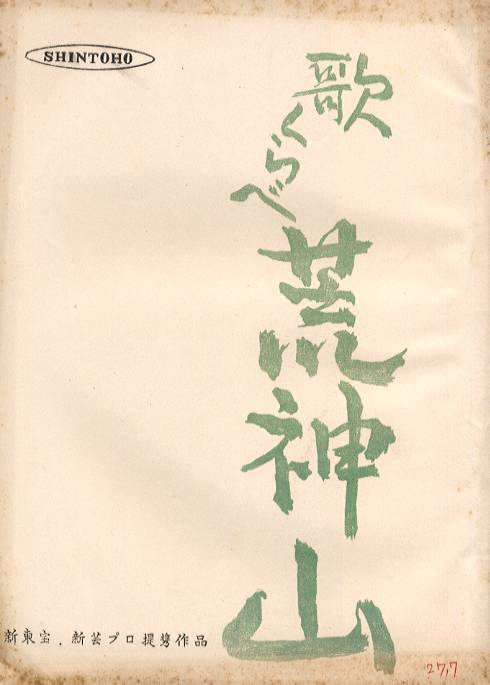 SHINTOHO
歌くらべ
荒神山
新東宝．新芸プロ提携作品
27,7